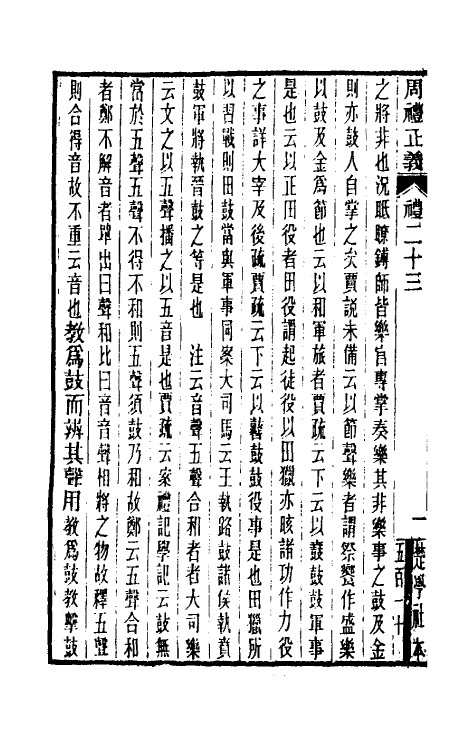 周禮正義 禮二十三 一 五百一十 楚學社本
之將非也況眡瞭鎛師皆樂官專掌奏樂其非樂事之鼓及金
則亦鼓人自掌之矣賈說未備云以節聲樂者謂祭饗作盛樂
以鼓及金爲節也云以和軍旅者賈疏云下云以鼖鼓鼓軍事
是也云以正田役者田役謂起徒役以田獵亦晐諸功作力役
之事詳大宰及後疏賈疏云下云以鼛鼓鼓役事是也田獵所
以習戰則田鼓當與軍事同案大司馬云王執路鼓諸侯執賁
鼓軍將執晉鼓之等是也　注云音聲五聲合和者者大司樂
云文之以五聲播之以五音是也賈疏云案禮記學記云鼓無
當於五聲五聲不得不和則五聲須鼓乃和故鄭云五聲合和
者鄭不解音者單出曰聲和比曰音音聲相將之物故釋五聲
則合得音故不重云音也教爲鼓而辨其聲用教爲鼓教擊鼓